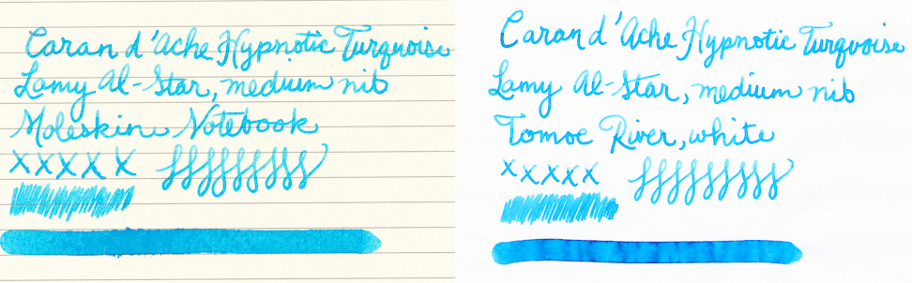 Caran d'Ache Hypnotic Turquoise
Lamy Al-Star, medium nib
Moleskine Notebook
XXXXX
Caran d'Ache Hypnotic Turquoise
Lamy Al-Star, medium nib
Tomoe River, white
XXXXX